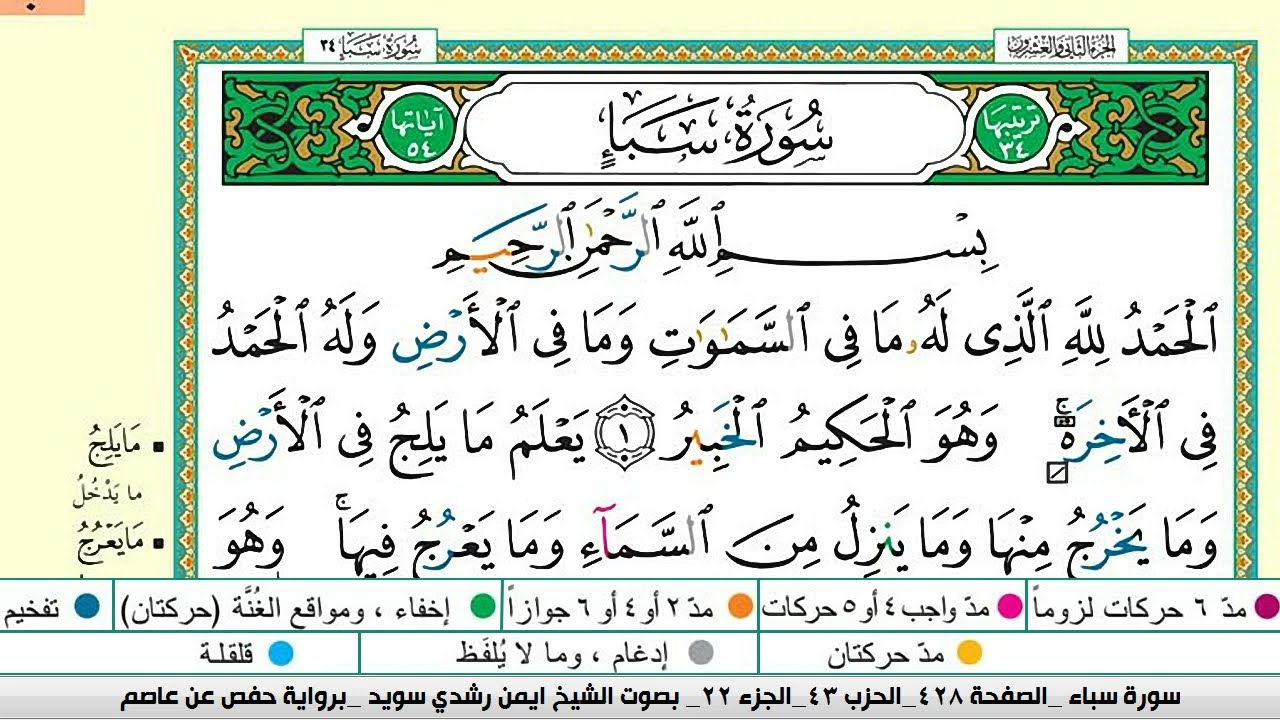 سُورَةُ سَبَإٍ ٣٤
الجُزْءُ الثَّانِي وَالْعِشْرُونَ
ترتيبها ٣٤
سُورَةُ سَبَإٍ
آياتها ٥٤
بِسْمِ ٱللَّهِ ٱلرَّحْمَٰنِ ٱلرَّحِيمِ
ٱلْحَمْدُ لِلَّهِ ٱلَّذِى لَهُۥ مَا فِى ٱلسَّمَٰوَٰتِ وَمَا فِى ٱلْأَرْضِ وَلَهُ ٱلْحَمْدُ
فِى ٱلْأَخِرَةِۚ وَهُوَ ٱلْحَكِيمُ ٱلْخَبِيرُ ١ يَعْلَمُ مَا يَلِجُ فِى ٱلْأَرْضِ
وَمَا يَخْرُجُ مِنْهَا وَمَا يَنزِلُ مِنَ ٱلسَّمَآءِ وَمَا يَعْرُجُ فِيهَاۚ وَهُوَ
▪ مَا يَلِجُ
ما يَدْخُلُ
▪ مَا يَعْرُجُ
مدّ ٦ حركات لزوماً
مدّ واجب ٤ أو ٥ حركات
مدّ ٢ أو ٤ أو ٦ جوازاً
إخفاء ، ومواقع الغُنَّة (حركتان)
تفخيم
مدّ حركتان
إدغام ، وما لا يُلفَظ
قلقلة
سورة سباء _الصفحة ٤٢٨_الحزب ٤٣_الجزء ٢٢_ بصوت الشيخ ايمن رشدي سويد _برواية حفص عن عاصم